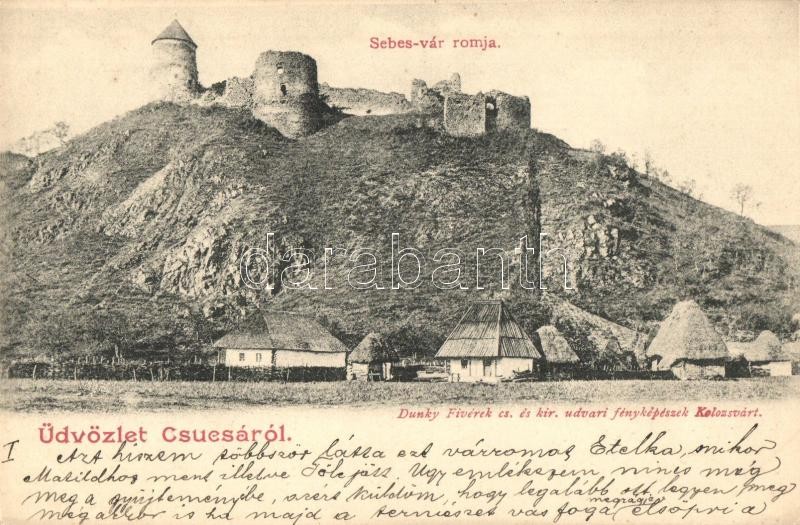 Sebes-vár romja.
darabanth
Dunky Fivérek cs. és kir. udvari fényképészek Kolozsvárt.
Üdvözlet Csucsáról.
I Azt hiszem többször látta ezt várromot Etelka, mikor
Matildhoz ment illetve Tőle jött. Úgy emlékszem, nincs még
meg a gyüjteményébe, azért küldöm, hogy legalább ott legyen meg
megakkor is ha majd a természet vas foga elsöpri a